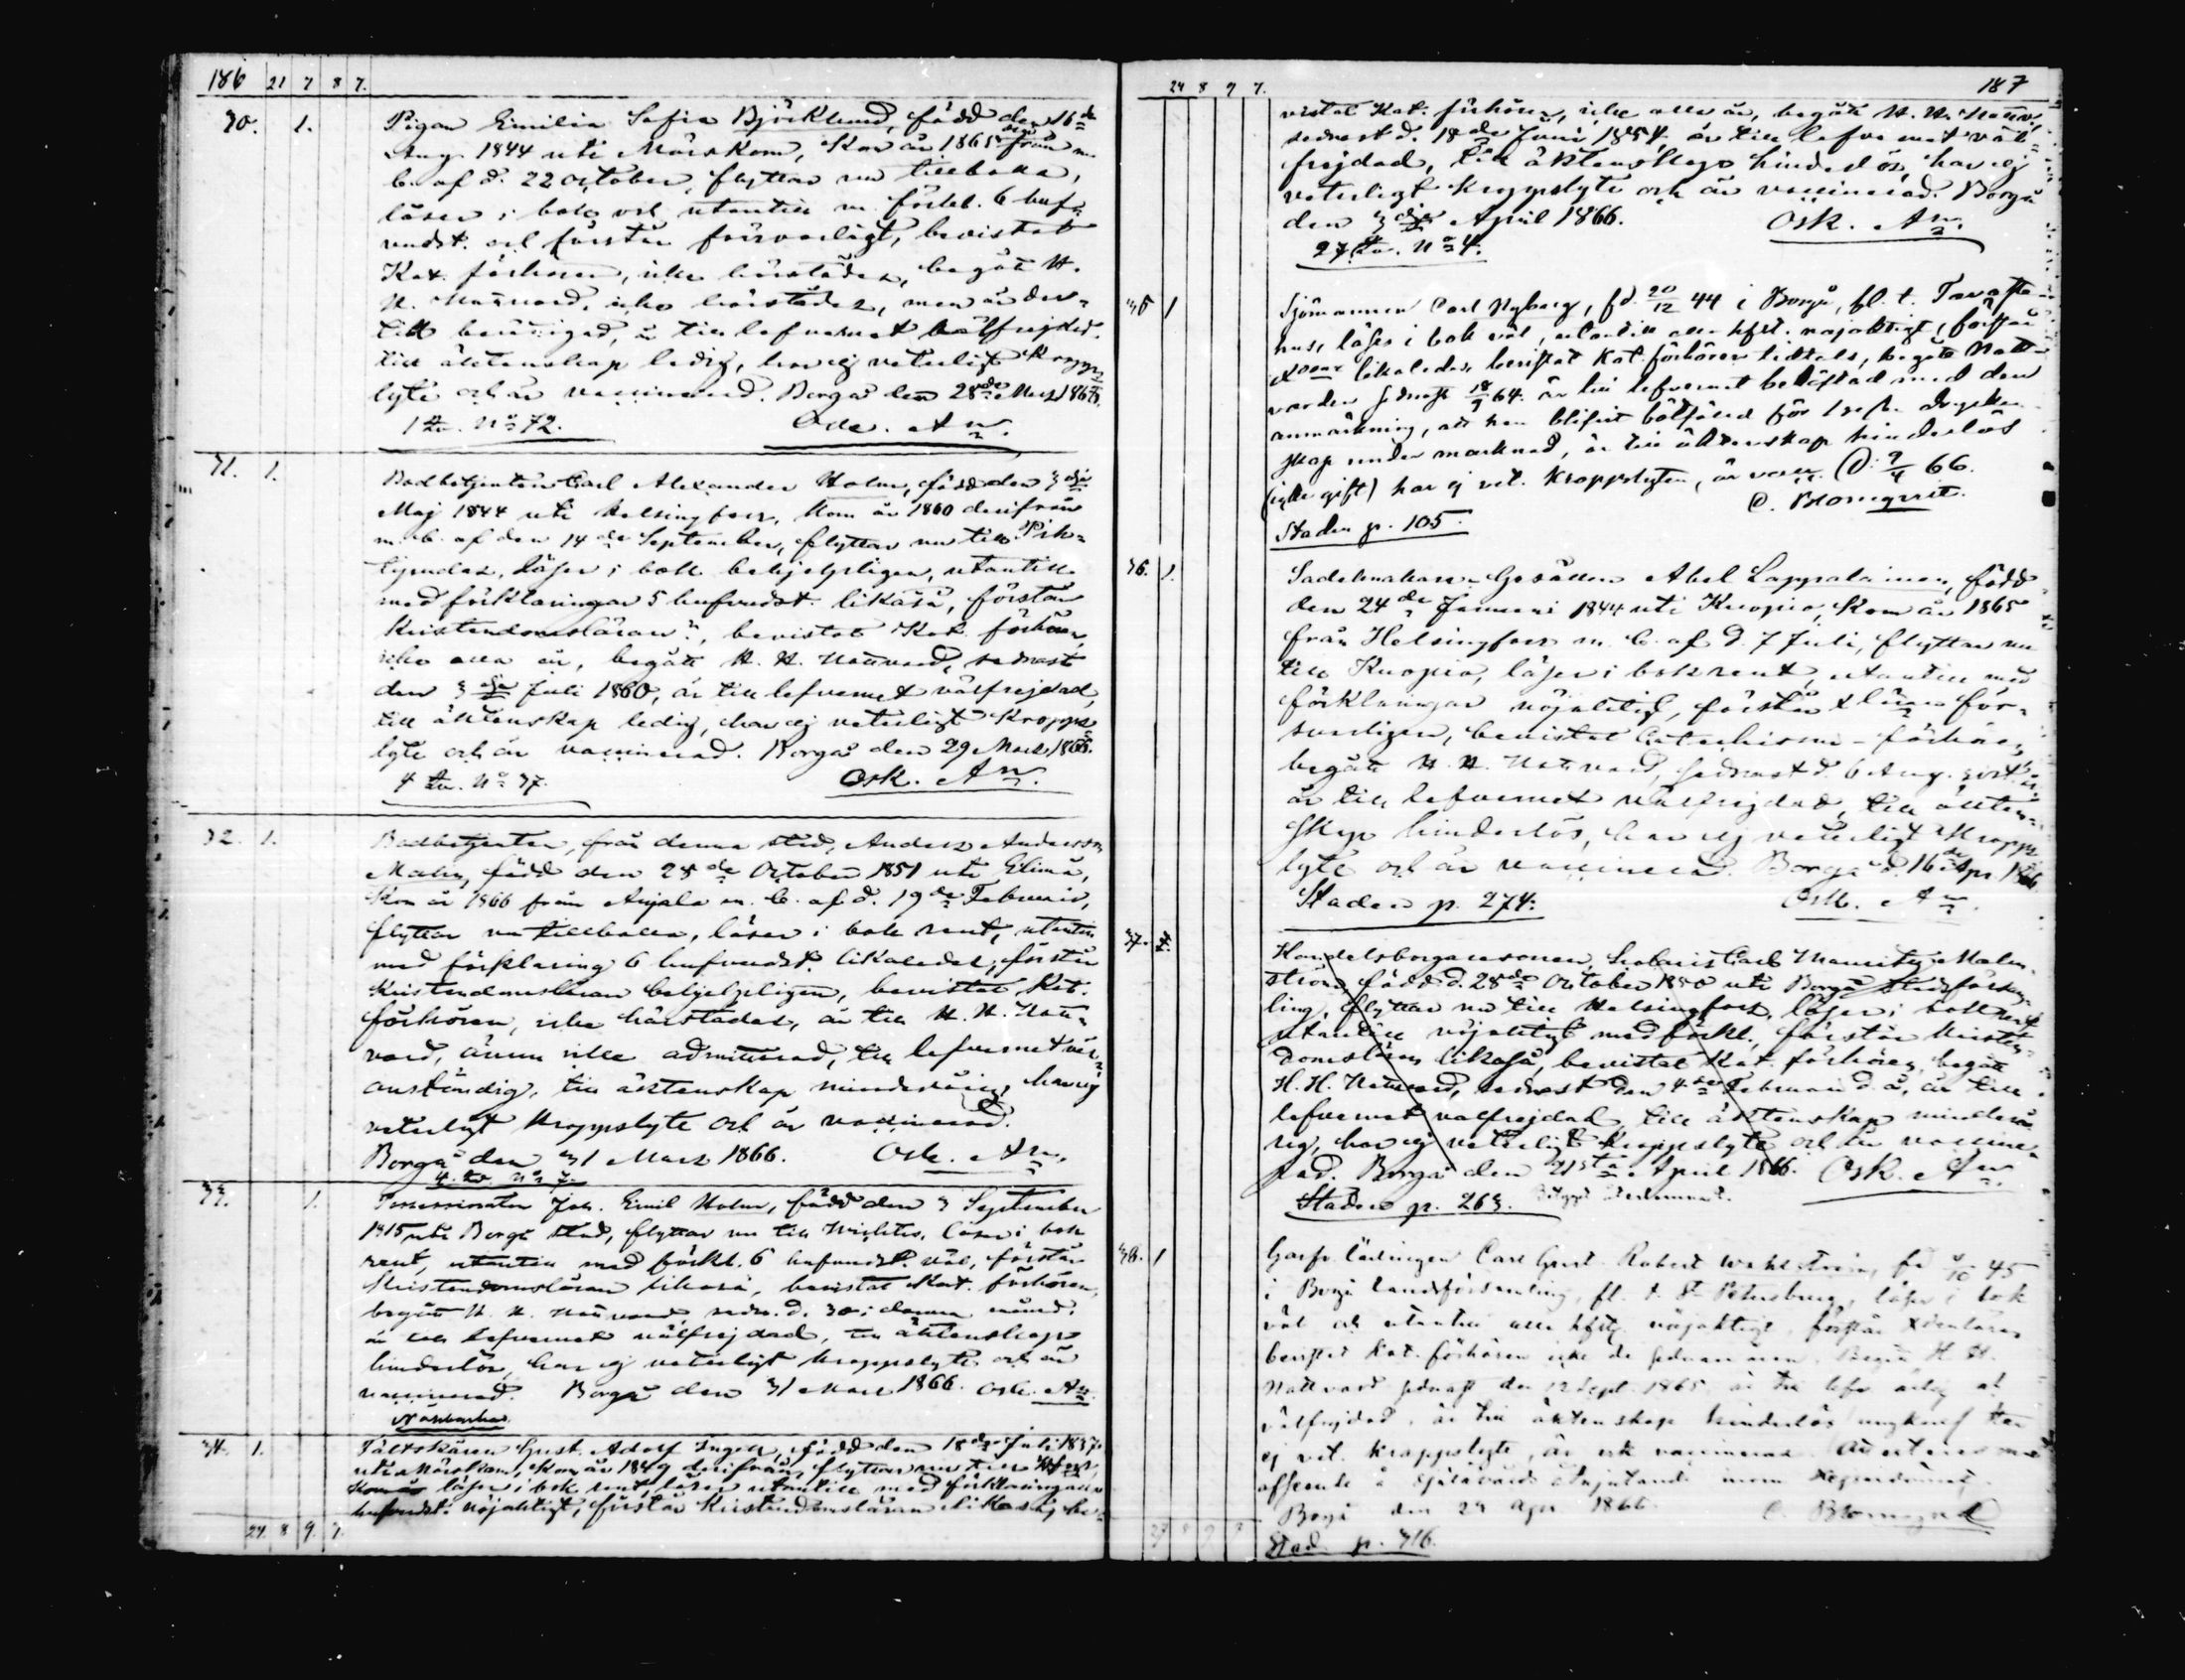 186 21 7 8 7.
30. 1. Pigan Emilia Sofia Björklund, född den 16de
Aug. 1844 uti Mörskom, Kom år 1865 derifrån m.
b. af d. 22 October, flyttar nu tillbaka,
läser i bok och utantill m. förkl. 6 huf-
vudst. och förstår försvarligt, bevistat
Kat. förhören, icke härstädes, begått H.
H. Nattvard, icke härstädes, men är der-
till berättigad, är till lefvernet välfrejdad,
till äktenskap ledig, har ej veterligt Kropps-
lyte och är vaccinerad. Borgå den 28de Mars 1866.
1 No 72. Osc. An.
31. 1. Bodbetjenten Carl Alexander Holm, född den 3dje
Maj 1844 uti Helsingfors, Kom år 1860 derifrån
m. b. af den 14de September, flyttar nu till Pik-
läser i bok behjelpligen, utantill
med förklaringar 5 hufvudst. likaså, förstår
Kristendomsläran bevistat Kat. förhören,
icke alla år, begått H. H. Nattvard, sednast
den 3dje Juli 1860, är till lefvernet välfrejdad,
till äktenskap ledig, har ej veterligt Kropps-
lyte och är vaccinerad. Borgå den 29 Mars 1866.
4 No 37. Osk. An.
32. 1. Bodbetjenten, från denna stad, Anders Andersson
Malm, född den 28de October 1851 uti Elimä,
Kom år 1866 från Anjala m. b. af d. 19de Februari,
flyttar nu tillbaka, läser i bok rent, utantill
med förklaring 6 hufvudst. likaledes, förstår
Kristendomsläran behjelpligen, bevistat Kat.
förhören, icke härstädes, är till H. H. Natt-
vard, ännu icke admitterad, till lefvernet väl-
anständig, till äktenskap minderårig, har ej
veterligt Kroppslyte och är vaccinerad.
Borgå den 31 Mars 1866. Osk. An.
4. No 7.
33. 1. Possessionaten Joh. Emil Holm, född den 3 September
1815 uti Borgå stad, flyttar nu till läser i bok
rent, utantill med förkl. 6 hufvudst. väl, förstår
Kristendomsläran likaså, bevistat Kat. förhören,
begått H. H. Nattvard, sedn. d. 30 i denna månad,
är till lefvernet välfrejdad, till äktenskap
hinderlös, har ej veterligt Kroppslyte och är
vaccinerad. Borgå den 31 Mars 1866. Osk. An.
34. 1. Fältskären Gust. Adolf född den 18de Juli 1837
uti Mörskom, Kom år 1849 derifrån, flyttar nu till
läser i bok rent, läser utantill med förklaring
hufvudst. nöjaktigt, förstår Kristendomsläran likaså, be-
24. 8 9. 7.
24 8 9 7. 187
vistat Kat. förhören, icke alla år, begått H. H. Nattv.
sednast d. 18de Juni 1854, är till lefvernet väl-
frejdad, till äktenskap hinderlös, har ej
veterligt Kroppslyte och är vaccinerad. Borgå
den 3dje April 1866. Osk. An.
27 No 4.
35 1 Sjömannen Carl Nyberg, fd. 20/12 44 i Borgå, fl. t. Tavaste-
hus, läser i bok väl, utantill alla hfst. nojaktigt, förstår
likaledes, bevistat Kat. förhören tidtals, begått Natt-
varden sednast 18/9 64. är till lefvernet behäftad med den
anmärkning, att han blifvit bötfäld för 1 sta drycken-
skap under marknad, är till äktenskap hinderlös
(icke gift) har ej vet. Kroppslyten, är vacc. D. 9/4 66.
C. Blomqvist.
Staden p. 105.
36. 1. Sadelmakare-Gesällen Abel Lappalainen, född
den 24de Januari 1844 uti Kuopio, Kom år 1865
från Helsingfors m. b. af d. 7 Juli, flyttar nu
till Kuopio, läser i bok rent, utantill med
förklaringar nöjaktigt, förstår för-
svarligen, bevistat Catechismi-förhören,
begått H. H. Nattvard, sednast d. 6 Aug. sistl.
är till lefvernet välfrejdad, till äkten-
skap hinderlös, har ej veterligt Kropps-
lyte och är vaccinerad. Borgå d. 16de Apr. 1866
Staden p. 274. Osk. An.
37. 1. Handelsborgaresonen, Carl Mauritz Malm-
ström, född d. 28de October 1850 uti Borgå Stadsförsam-
ling, flyttar nu till Helsingfors, läser i bok rent
utantill nöjaktigt med förkl., förstår Kristen-
domsläran likaså, bevistat Kat. förhören, begått
H. H. Nattvard, sednast den 4de Februari d. å., är till
lefvernet välfrejdad, till äktenskap minderå-
rig, har ej veterligt Kroppslyte och är vaccine-
rad. Borgå den 21sta April 1866. Osk. An.
Staden p. 263.
38. 1 Garfv. lärlingen Carl Gust. Robert Wahlström, fd 45
i Borgå Landsförsamling, fl. t. St Petersburg, läser i bok
väl och utantill alla hfstg. nöjaktigt, förstår
bevistat Kat. förhören icke de sednare åren. Begått H. H.
Nattvard sednast den 12 Sept. 1865 är till
välfrejdad, är till äktenskap hinderlös ungkarl har
ej vet. Kroppslyte, är ock vaccinerad.
afseende å själavård
Borgå den 24 Apr. 1866 C. Blomqvist
Stad. p. 316.